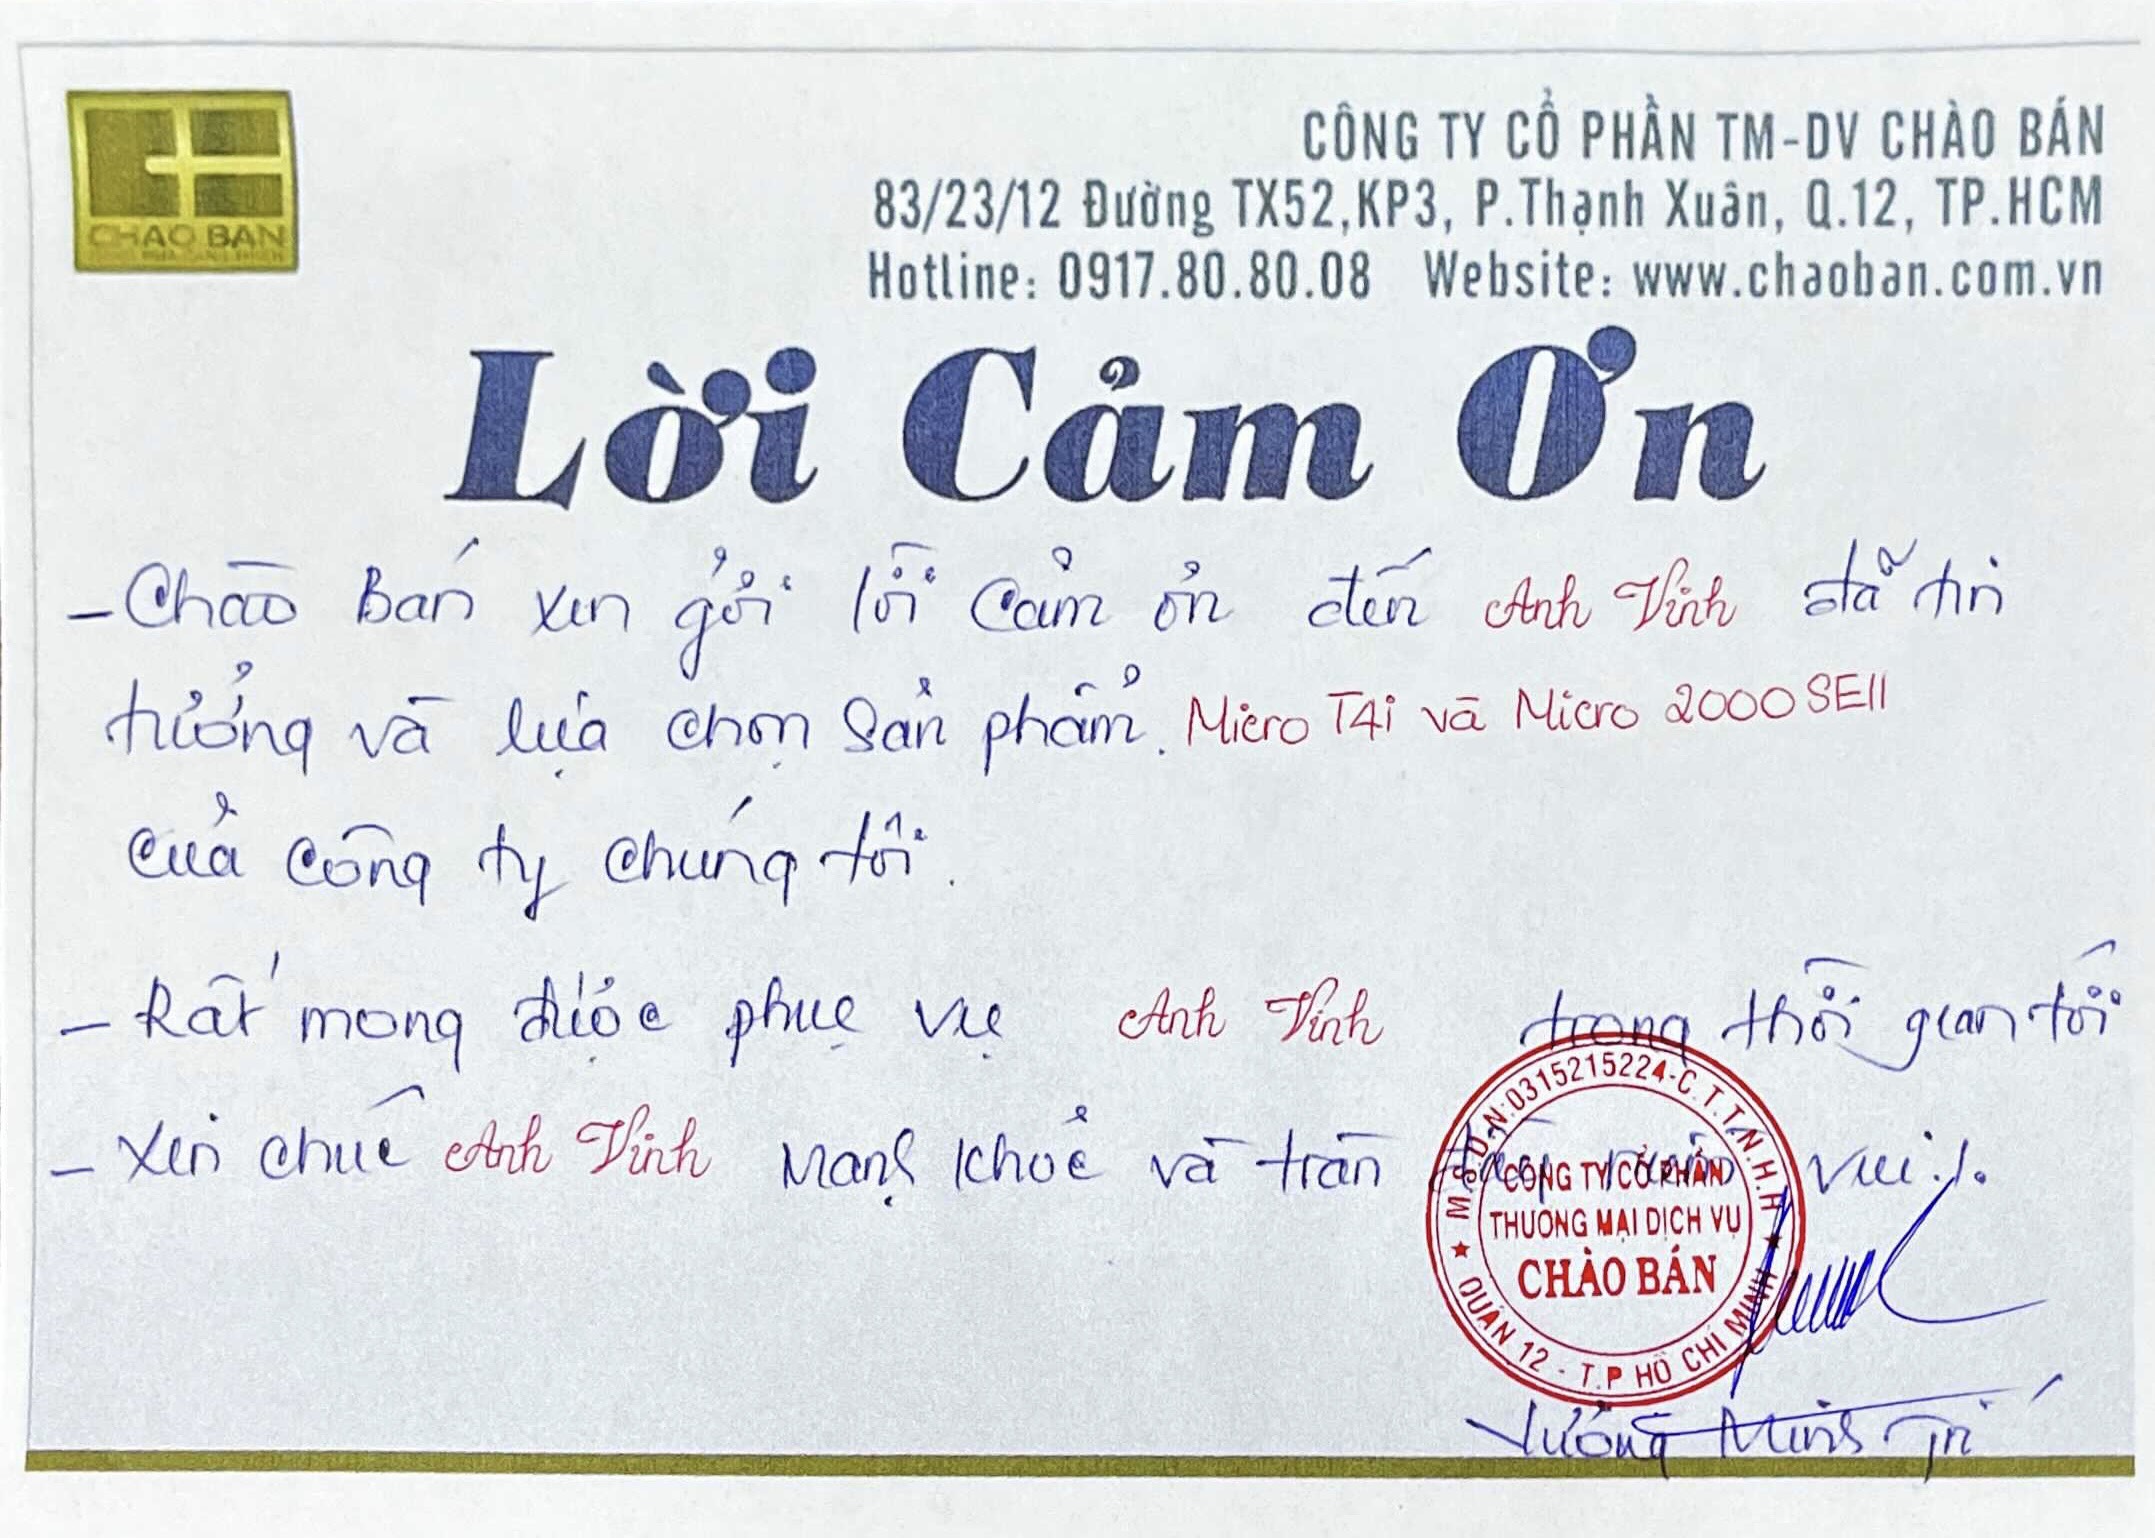 CHAO BAN
CÔNG TY CỔ PHẦN TM-DV CHÀO BÁN
83/23/12 Đường TX52,KP3, P.Thạnh Xuân, Q.12, TP.HCM
Hotline: 0917.80.80.08 Website: www.chaoban.com.vn
Lời Cảm Ơn
- Chào Bán xin gởi lời cảm ơn đến Anh Vĩnh đã tin
tưởng và lựa chọn sản phẩm. Micro T4i và Micro 2000SEII
của công ty chúng tôi.
- Rất mong được phục vụ Anh Vĩnh trong thời gian tới
- Xin chúc Anh Vĩnh mạnh khỏe và tràn đầy niềm vui./.
M.S.D.N:0315215224-C.T.T.N.H.H
CÔNG TY CỔ PHẦN
THƯƠNG MẠI DỊCH VỤ
CHÀO BÁN
QUẬN 12 - T.P HỒ CHÍ MINH
Minh Trí